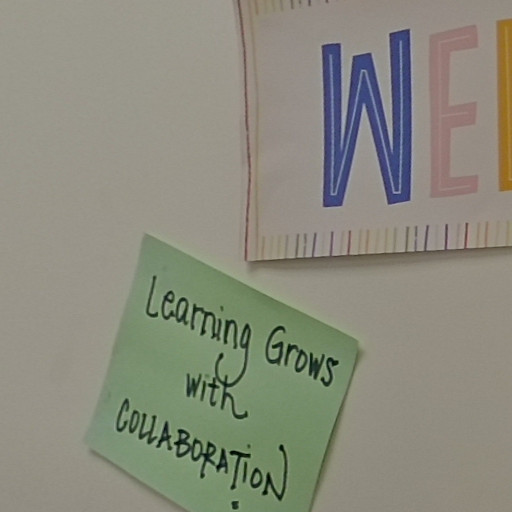 WE
Learning Grows
with
COLLABORATION